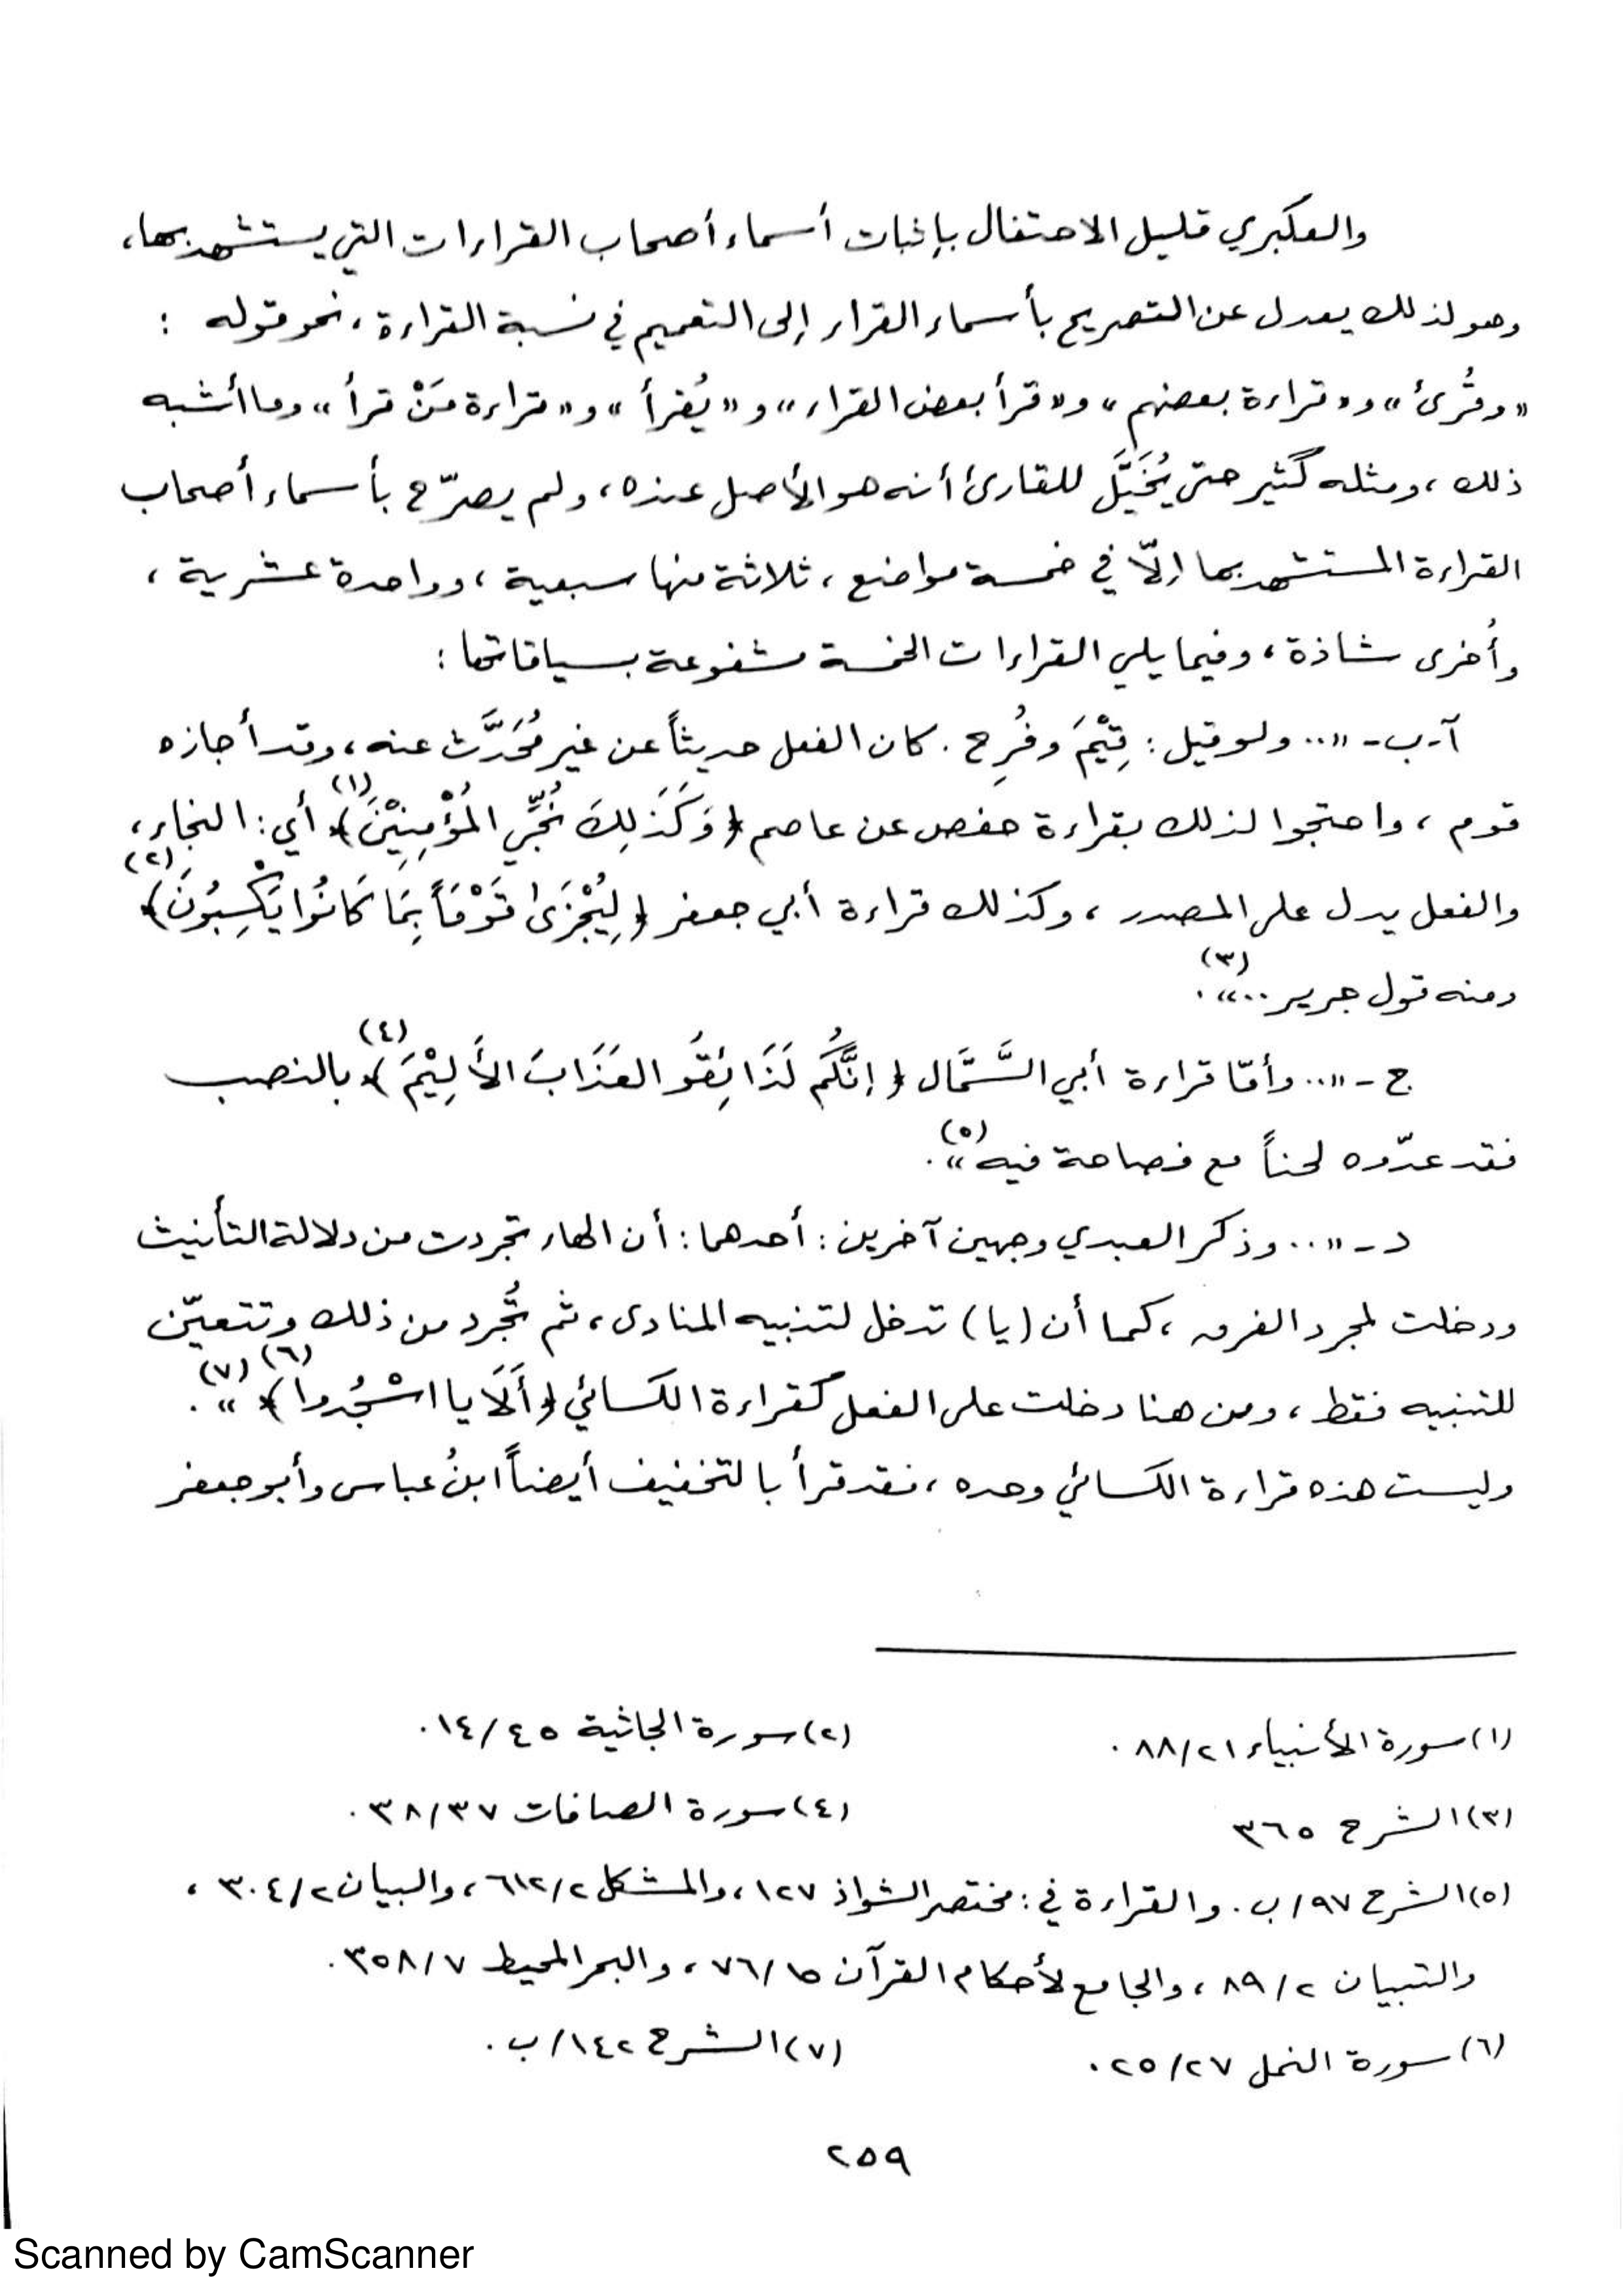 والعكبري قليل الاحتفال بإثبات أسماء أصحاب القراءات التي يستشهد بها،
وهو لذلك يعدل عن التصريح بأسماء القراء إلى التعميم في نسبة القراءة، نحو قوله :
«وقُرئ» و«قراءة بعضهم» و«قرأ بعض القراء» و«يُقرأ» و«قراءة مَنْ قرأ» وما أشبه
ذلك، ومثله كثير حتى يُخَيَّل للقارئ أنه هو الأصل عنده، ولم يصرّح بأسماء أصحاب
القراءة المستشهد بها إلّا في خمسة مواضع، ثلاثة منها سبعية، وواحدة عشرية،
وأُخرى شاذة، وفيما يلي القراءات الخمسة مشفوعة بسياقاتها :
آ-ب- «.. ولو قيل : قِيْمَ وفُرِح . كان الفعل حديثاً عن غير مُحَدَّث عنه، وقد أجازه
قوم، واحتجوا لذلك بقراءة حفص عن عاصم ﴿وَكَذَلِكَ نُجِّي المُؤْمِنِيْنَ﴾(١) أي : النجاء،
والفعل يدل على المصدر، وكذلك قراءة أبي جعفر ﴿لِيُجْزَىٰ قَوْمَاً بِمَا كَانُوا يَكْسِبُونَ﴾(٢)
ومنه قول جرير ..»(٣).
ج - «.. وأمّا قراءة أبي السَّمَّال ﴿إنَّكُم لَذَائِقُو العَذَابَ الأَلِيْمَ﴾(٤) بالنصب
فقد عدّوه لحناً مع فصاحة فيه»(٥).
د - «.. وذكر العبدي وجهين آخرين : أحدهما : أن الهاء تجردت من دلالة التأنيث
ودخلت لمجرد الفرق، كما أن (يا) تدخل لتنبيه المنادى، ثم تُجرد من ذلك وتتعيّن
للتنبيه فقط، ومن هنا دخلت على الفعل كقراءة الكسائي ﴿أَلَا يا اسْجُدوا﴾(٦)»(٧).
وليست هذه قراءة الكسائي وحده، فقد قرأ بالتخفيف أيضاً ابنُ عباس وأبو جعفر
(١) سورة الأنبياء ٨٨/٢١ .
(٢) سورة الجاثية ١٤/٤٥ .
(٣) الشرح ٣٦٥
(٤) سورة الصافات ٣٨/٣٧ .
(٥) الشرح ٩٧/ب . والقراءة في : مختصر الشواذ ١٢٧، والمشكل ٦١٢/٢، والبيان ٣٠٤/٢،
والتبيان ٨٩/٢، والجامع لأحكام القرآن ٧٦/١٥، والبحر المحيط ٣٥٨/٧ .
(٦) سورة النمل ٢٥/٢٧ .
(٧) الشرح ١٤٢/ب .
٢٥٩
Scanned by CamScanner